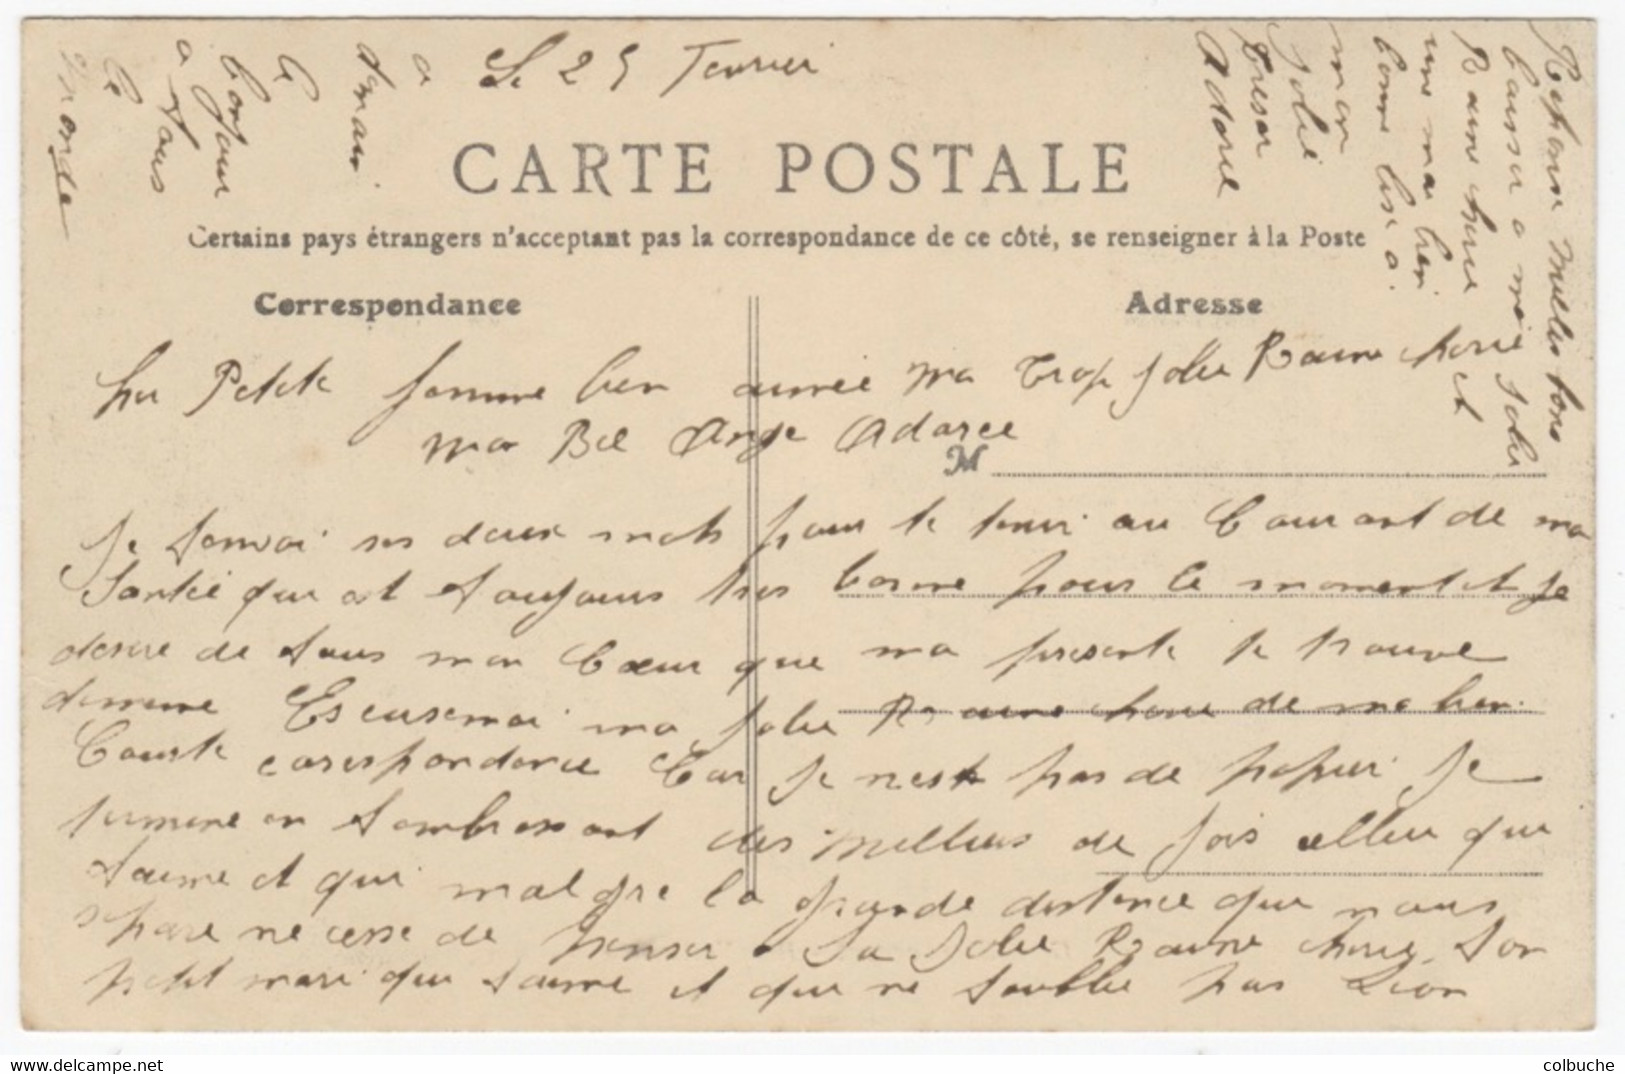 Le 25 Fevrier
CARTE POSTALE
Certains pays étrangers n'acceptant pas la correspondance de ce côté, se renseigner à la Poste
Correspondance
Adresse
Petite femme bien aimée Ma trop jolie Reine cherie et
ma Bel Ange Adoree
M
Je tenvoi ses deux mots pour te tenir au Courant de ma
Santée qui est toujours tres bonne pour le moment et je
desire de tous mon Cœur que ma presente te trouve
de meme Escusemoi ma jolie Reine cherie de ma bien
Courte corespondance Car je nest pas de papier Je
termine en tembrassant des milliers de fois celleu que
taime et qui malgre la grande distance que nous
separe ne cesse de penser a sa Jolie Reine cherie. Ton
petit mari qui taime et qui ne toublie pas Leon
Reponse Milles bons
baiser a ma jolie
Reine cherie
une ma bien
bonne bise a
mon
jolie
tresor
Adorée
a
demain
le
bonjour
a tous
le
monde
colbuche